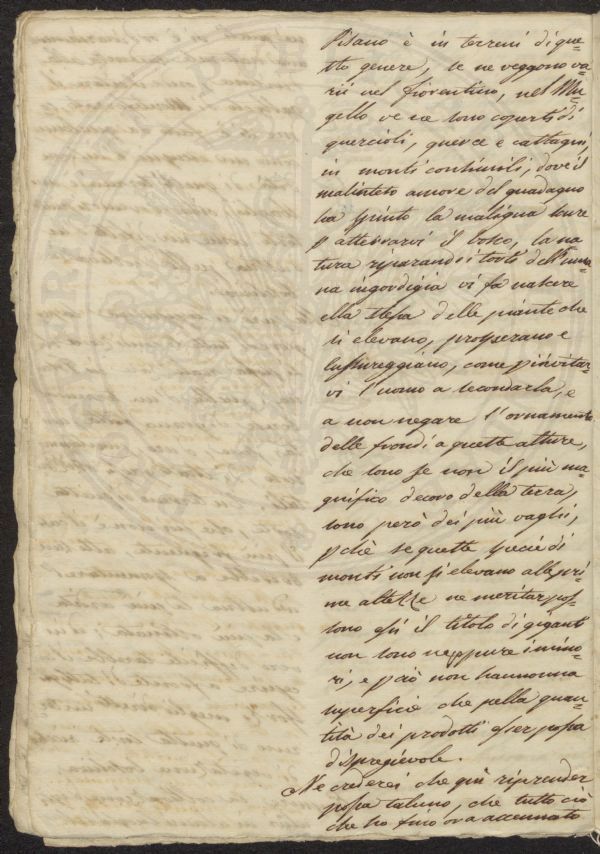 Pisano è in terreni di que=
sto genere, se ne veggono va=
rii nel fiorentino, nel Mu=
gello ve ne sono coperti di
quercioli, querce e castagni,
in monti continuati, dove il
malinteso amore del guadagno
ha spinto la maligna scure
p atterrarvi il bosco, la na=
tura riparando i torti dell'uma=
na ingordigia vi fà nascere
ella stessa delle piante che
si elevano, prosperano e
lussureggiano, come p invitar=
vi l'uomo a secondarla, e
a non negare l'ornamento
delle frondi a queste alture,
che sono se non il più ma=
gnifico decoro della terra,
sono però dei più vaghi,
pchè se queste specie di
monti non si elevano alle pri=
me altezze ne meritar pos=
sono essi il titolo di giganti
non sono neppure i mino=
ri, e pciò non hanno una
superficie che pella quan=
tità dei prodotti esser possa
dispregievole.
Ne crederei che quì riprender
possa taluno, che tutto ciò
che ho fino ora accennato